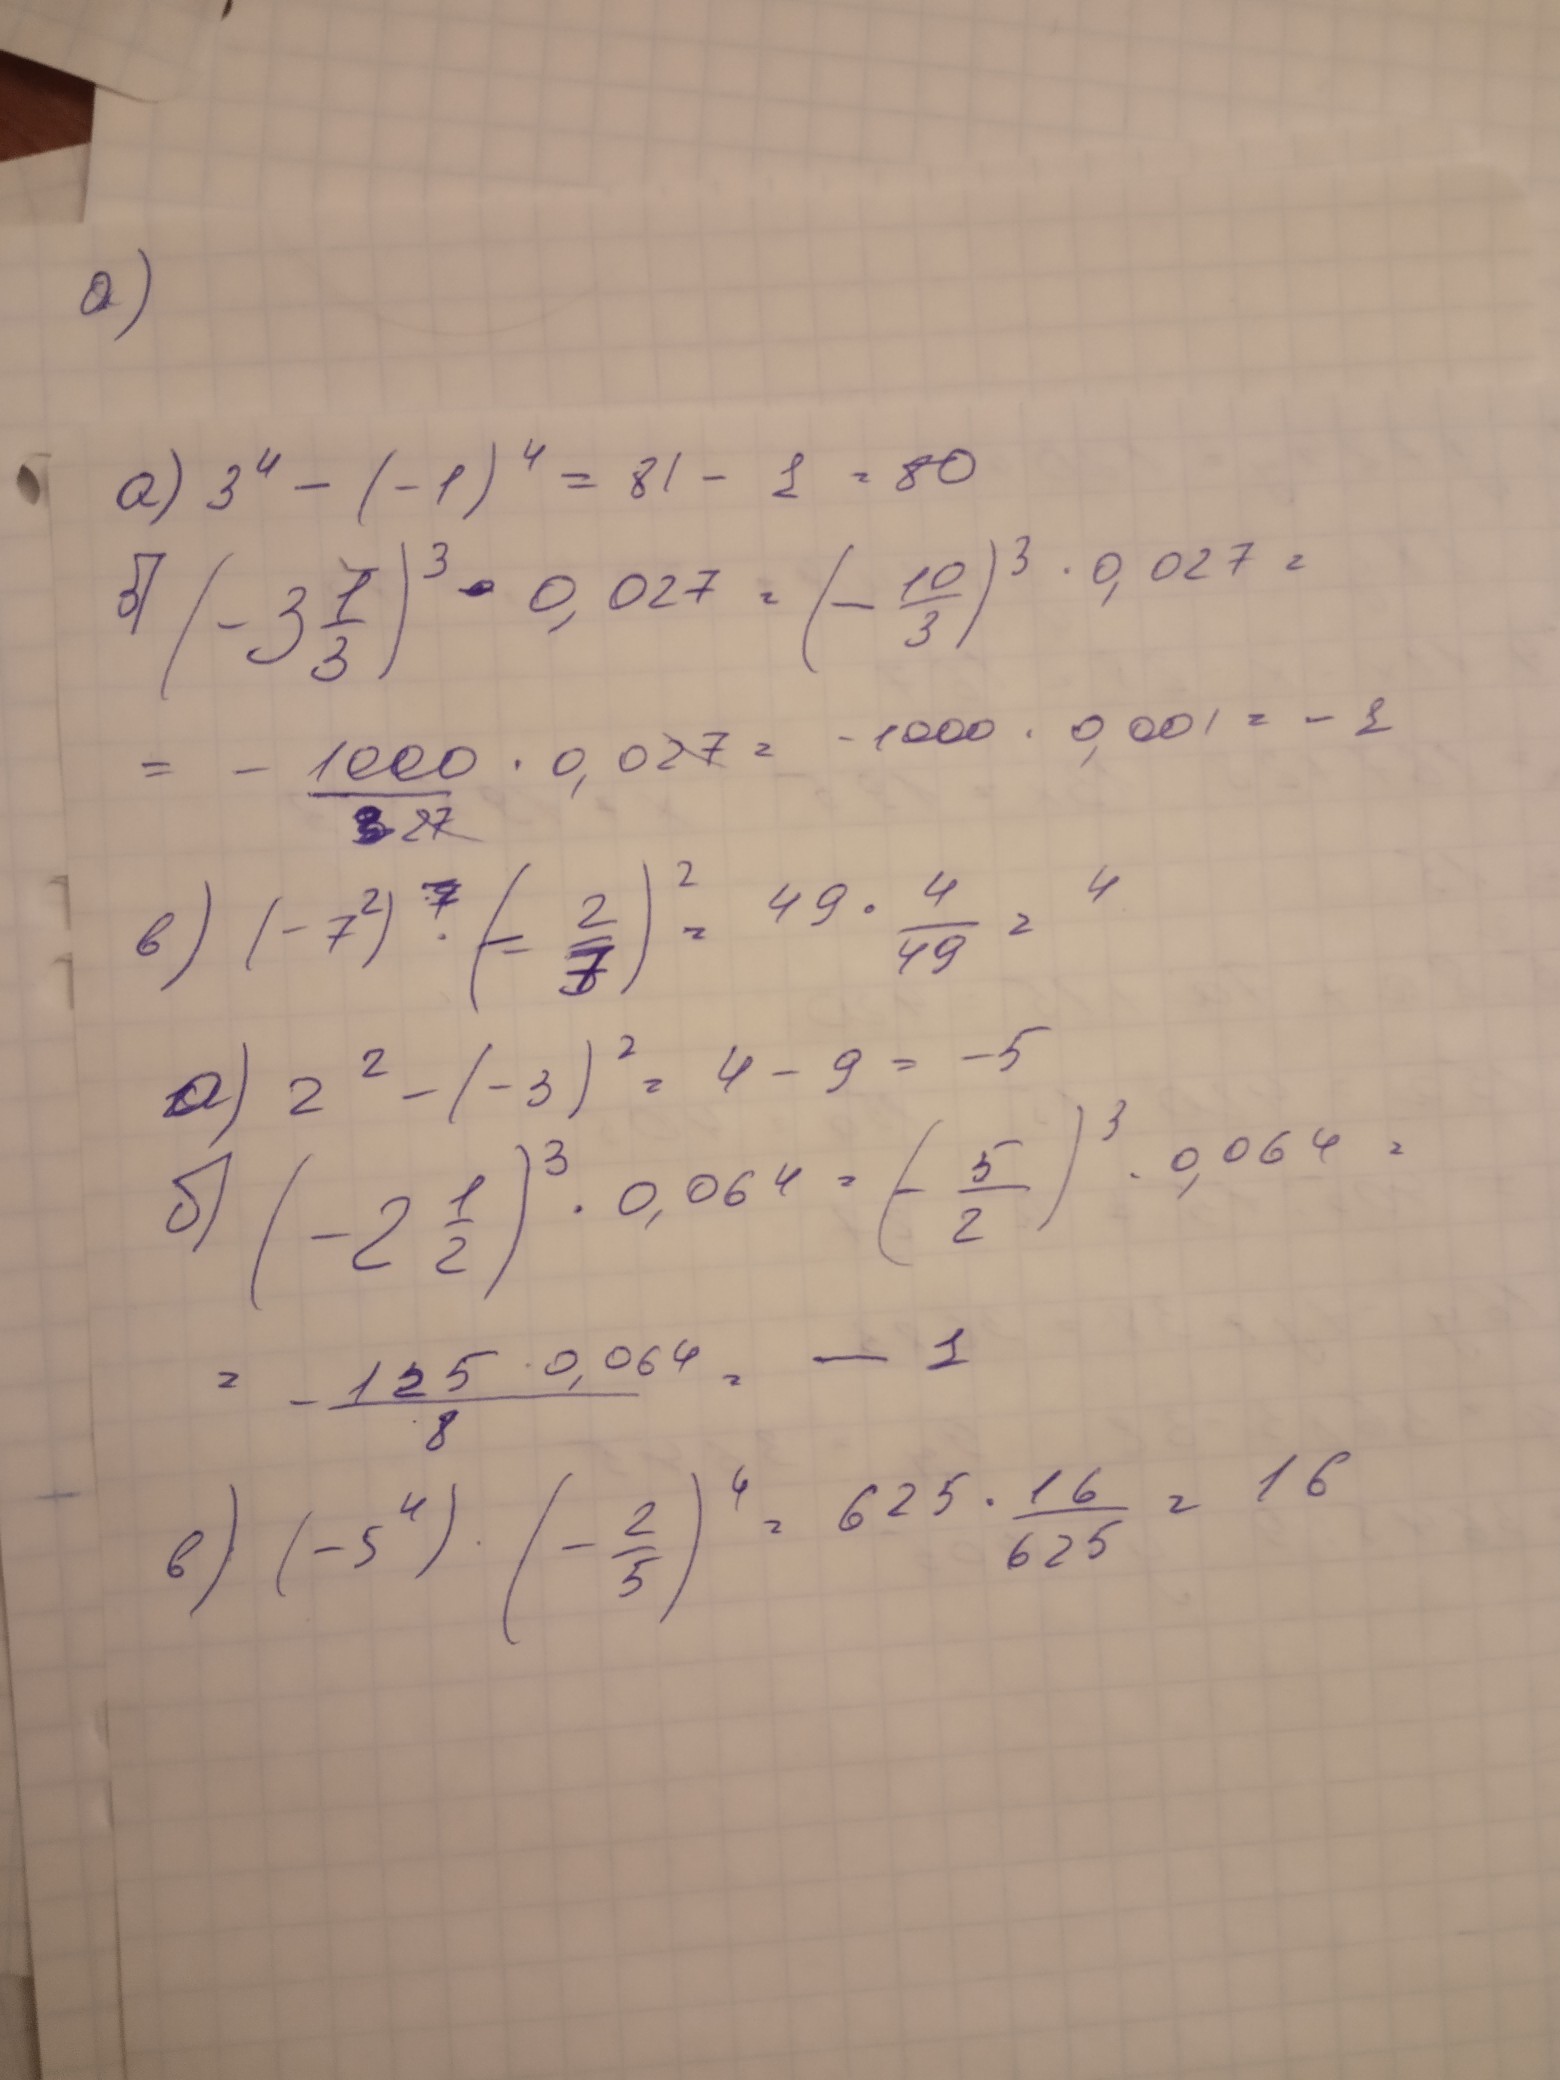 а)
а) 3⁴ - (-1)⁴ = 81 - 1 = 80
б) (-3 1/3)³ · 0,027 = (- 10/3)³ · 0,027 =
= - 1000/27 · 0,027 = -1000 · 0,001 = -1
в) (-7²) · (- 2/7)² = 49 · 4/49 = 4
а) 2² - (-3)² = 4 - 9 = -5
б) (-2 1/2)³ · 0,064 = (- 5/2)³ · 0,064 =
= - 125 · 0,064/8 = - 1
в) (-5⁴) · (- 2/5)⁴ = 625 · 16/625 = 16